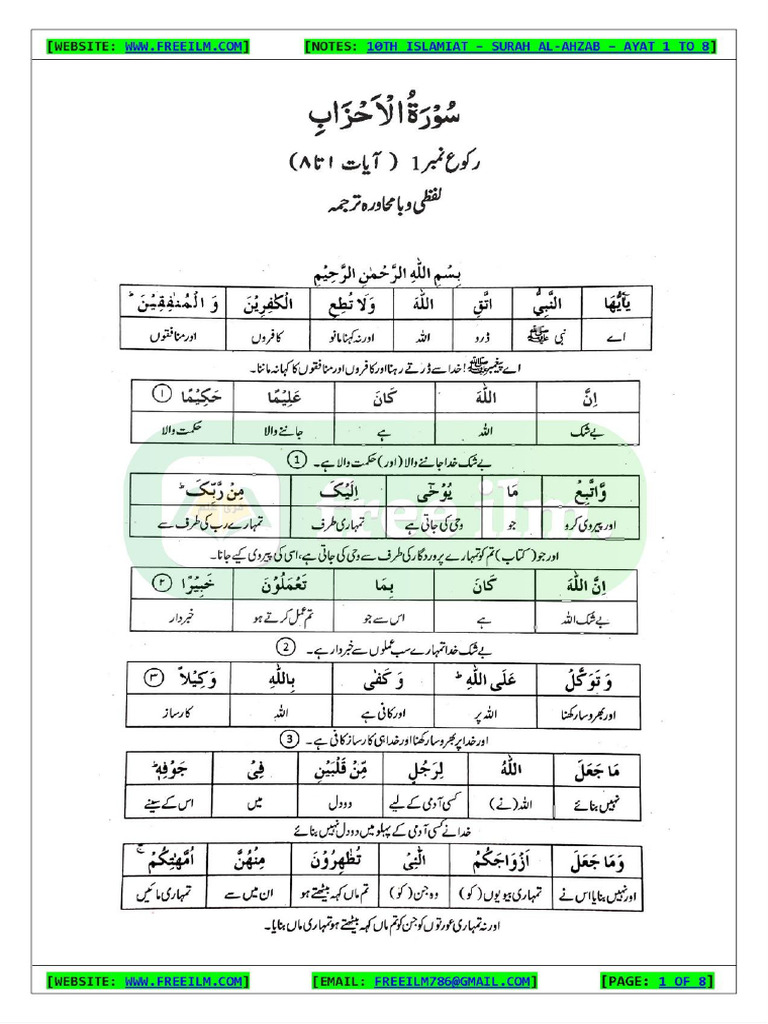 [WEBSITE: WWW.FREEILM.COM] [NOTES: 10TH ISLAMIAT – SURAH AL-AHZAB – AYAT 1 TO 8]
سُوْرَةُ الْاَحْزَابِ
رکوع نمبر 1 ( آیات ۱ تا ۸)
لفظی و بامحاورہ ترجمہ
بِسْمِ اللّٰهِ الرَّحْمٰنِ الرَّحِيْمِ
يٰٓاَيُّهَا النَّبِيُّ اتَّقِ اللّٰهَ وَلَا تُطِعِ الْكٰفِرِيْنَ وَ الْمُنٰفِقِيْنَ ؕ
اے نبی ﷺ ڈرو اللہ اور نہ کہنا مانو کافروں اور منافقوں
اے پیغمبر ﷺ! خدا سے ڈرتے رہنا اور کافروں اور منافقوں کا کہا نہ ماننا۔
اِنَّ اللّٰهَ كَانَ عَلِيْمًا حَكِيْمًا ۱
بے شک اللہ ہے جاننے والا حکمت والا
بے شک خدا جاننے والا (اور) حکمت والا ہے۔ 1
وَّاتَّبِعْ مَا يُوْحٰٓى اِلَيْكَ مِنْ رَّبِّكَ ؕ
اور پیروی کرو جو وحی کی جاتی ہے تمہاری طرف تمہارے رب کی طرف سے
اور جو (کتاب) تم کو تمہارے پروردگار کی طرف سے وحی کی جاتی ہے، اسی کی پیروی کیے جانا۔
اِنَّ اللّٰهَ كَانَ بِمَا تَعْمَلُوْنَ خَبِيْرًا ۲
بے شک اللہ ہے اس سے جو تم عمل کرتے ہو خبردار
بے شک خدا تمہارے سب عملوں سے خبردار ہے۔ 2
وَ تَوَكَّلْ عَلَى اللّٰهِ ؕ وَ كَفٰى بِاللّٰهِ وَكِيْلًا ۳
اور بھروسا رکھنا اللہ پر اور کافی ہے اللہ کارساز
اور خدا پر بھروسا رکھنا اور خدا ہی کارساز کافی ہے۔ 3
مَا جَعَلَ اللّٰهُ لِرَجُلٍ مِّنْ قَلْبَيْنِ فِىْ جَوْفِهٖ ۚ
نہیں بنائے اللہ (نے) کسی آدمی کے لیے دو دل میں اس کے سینے
خدا نے کسی آدمی کے پہلو میں دو دل نہیں بنائے
وَمَا جَعَلَ اَزْوَاجَكُمُ الّٰٓئِىْ تُظٰهِرُوْنَ مِنْهُنَّ اُمَّهٰتِكُمْ ۚ
اور نہیں بنایا اس نے تمہاری بیویوں (کو) وہ جن (کو) تم ماں کہہ بیٹھتے ہو ان میں سے تمہاری مائیں
اور نہ تمہاری عورتوں کو جن کو تم ماں کہہ بیٹھتے ہو تمہاری ماں بنایا۔
[WEBSITE: WWW.FREEILM.COM] [EMAIL: FREEILM786@GMAIL.COM] [PAGE: 1 OF 8]